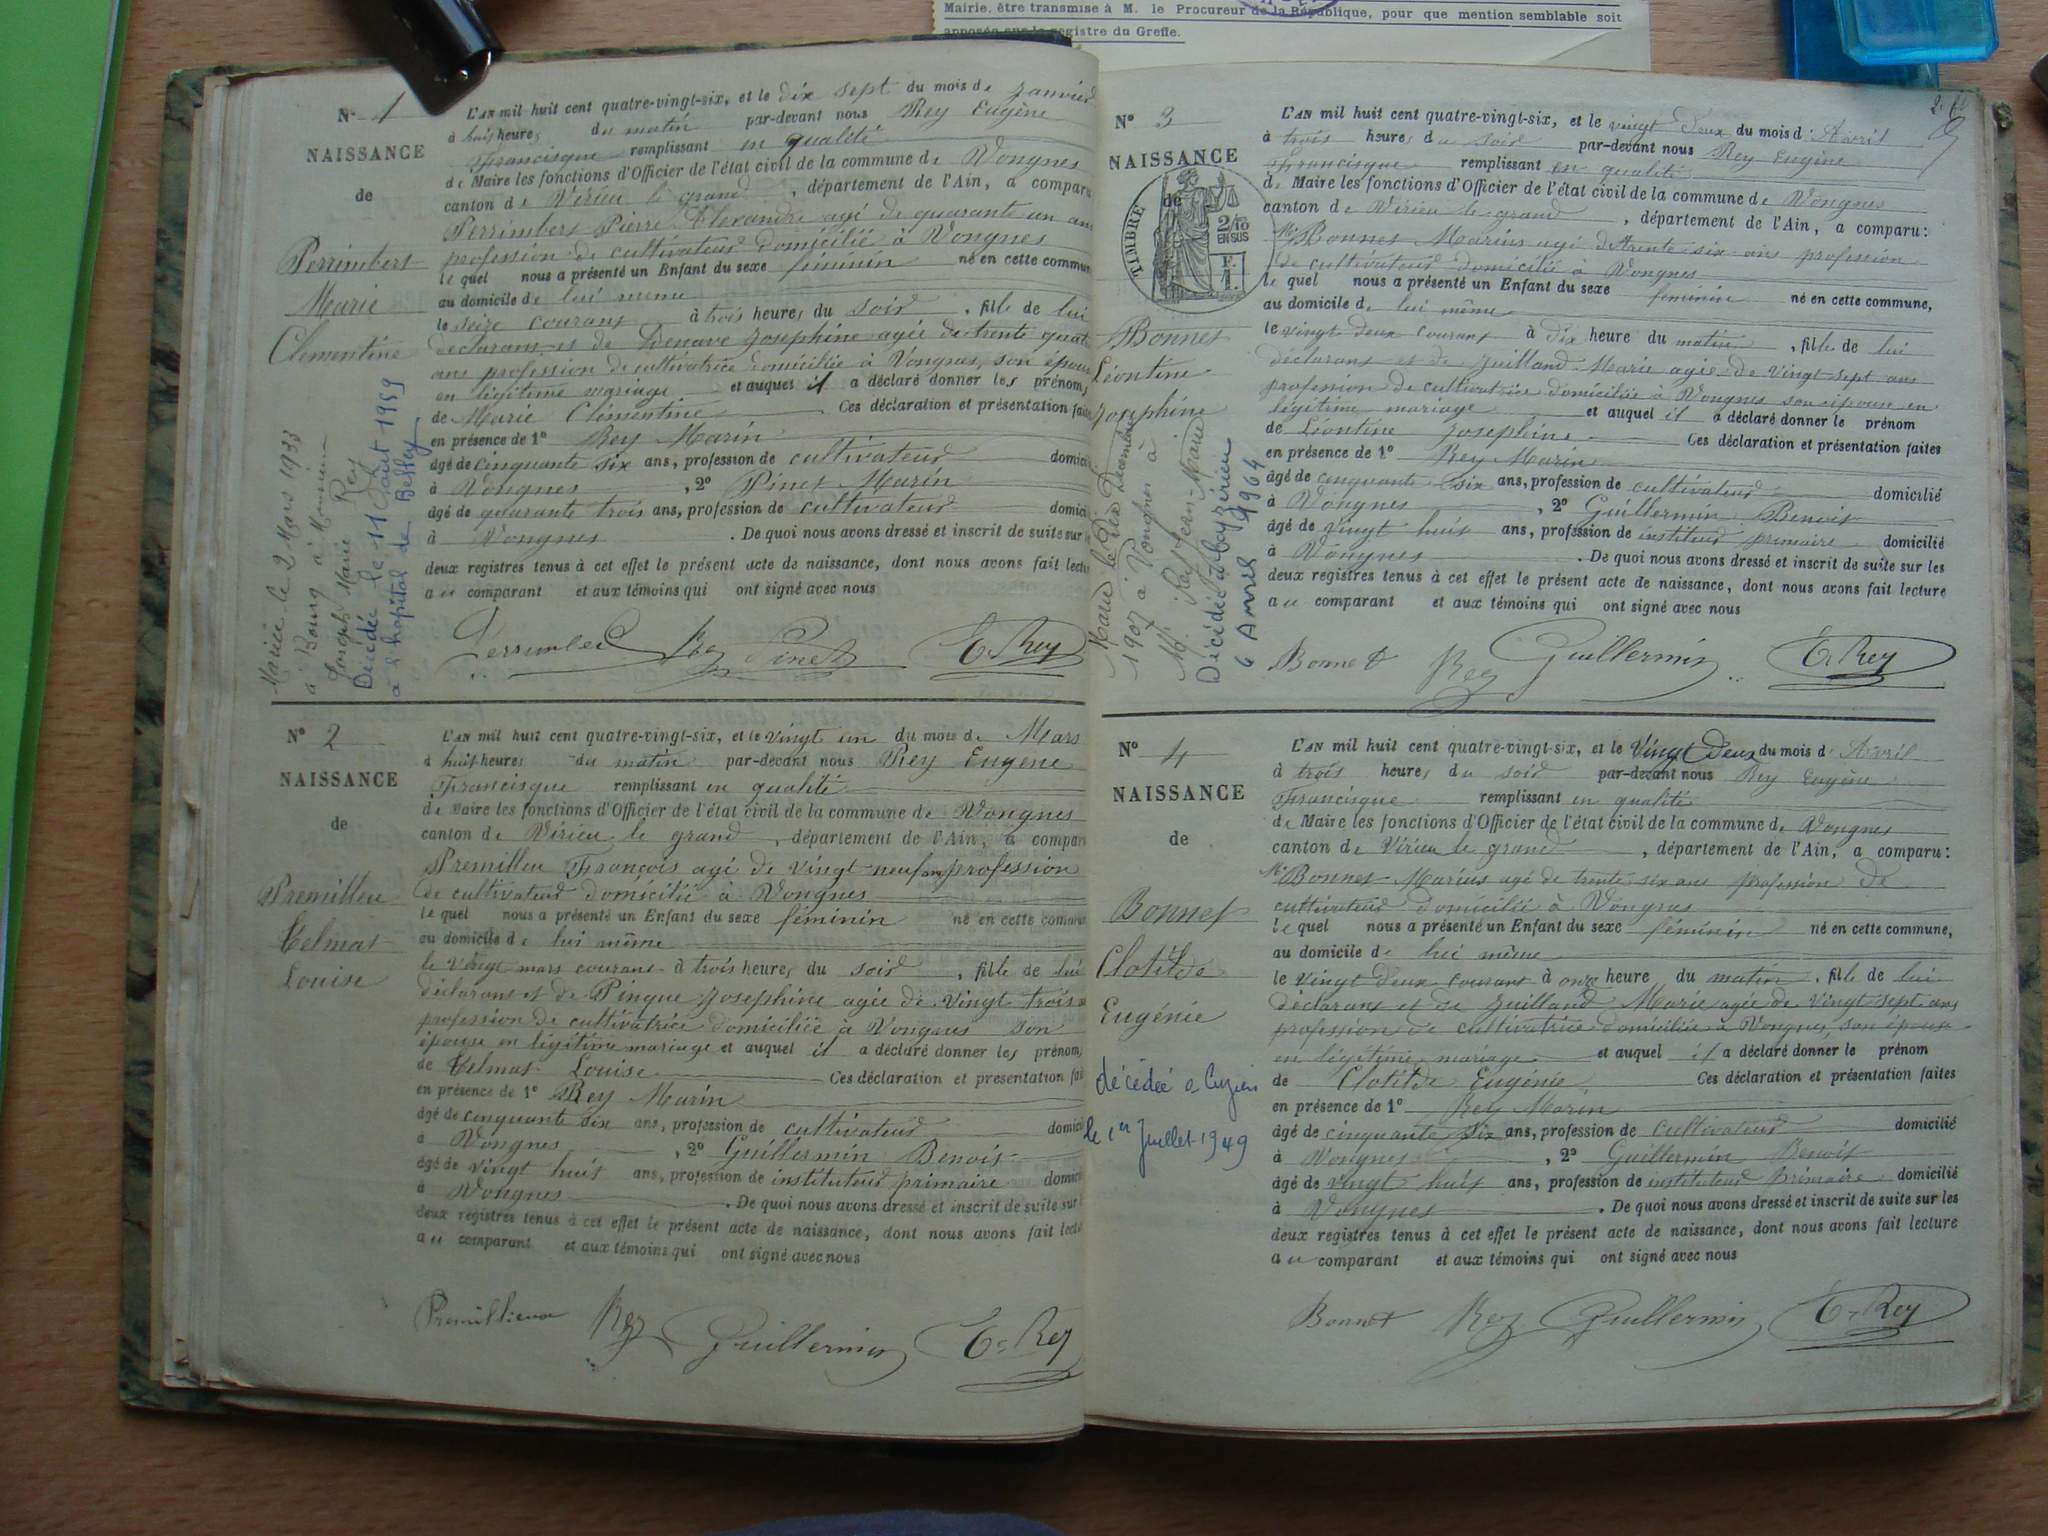 Mairie, être transmise à M. le Procureur de la République, pour que mention semblable soit
apposée sur le registre du Greffe.
N° 1
NAISSANCE
de
Perrimbert
Marie
Clementine
Mariée le 2 Mars 1933
à Bourg à Monsieur
Joseph Marie Rey
Décédée le 11 Août 1959
à l'hôpital de Belley
L'AN mil huit cent quatre-vingt-six, et le dix sept du mois de Janvier
à huit heures du matin par-devant nous Rey Eugène
Francisque remplissant en qualité
de Maire les fonctions d'Officier de l'état civil de la commune de Vongnes
canton de Virieu le grand, département de l'Ain, a comparu
Perrimbert Pierre Alexandre agé de quarante un ans
profession de cultivateur domicilié à Vongnes
le quel nous a présenté un Enfant du sexe féminin né en cette commun
au domicile de lui même
le seize courant à trois heures du soir, fille de lui
déclarant et de Denave Josephine agée de trente quat
ans profession de cultivatrice domiciliée à Vongnes, son épous
en légitime mariage et auquel il a déclaré donner les prénoms
de Marie Clémentine Ces déclaration et présentation faite
en présence de 1° Rey Marin
âgé de cinquante six ans, profession de cultivateur domici
à Vongnes, 2° Pinet Marin
âgé de quarante trois ans, profession de cultivateur domici
à Vongnes. De quoi nous avons dressé et inscrit de suite sur
deux registres tenus à cet effet le présent acte de naissance, dont nous avons fait lectu
a u comparant et aux témoins qui ont signé avec nous
Perrimbert Rey Pinet E. Rey
N° 2
NAISSANCE
de
Premilleu
Telmat
Louise
L'AN mil huit cent quatre-vingt-six, et le vingt un du mois de Mars
à huit heures du matin par-devant nous Rey Eugène
Francisque remplissant en qualité
de Maire les fonctions d'Officier de l'état civil de la commune de Vongnes
canton de Virieu le grand, département de l'Ain, a compar
Premilleu François agé de vingt neuf ans profession
de cultivateur domicilié à Vongnes
le quel nous a présenté un Enfant du sexe féminin né en cette commun
au domicile de lui même
le vingt mars courant à trois heures du soir, fille de lui
déclarant et de Pingue Josephine agée de vingt trois
profession de cultivatrice domiciliée à Vongnes son
épouse en légitime mariage et auquel il a déclaré donner les prénoms
de Telmat Louise Ces déclaration et présentation fai
en présence de 1° Rey Marin
âgé de cinquante six ans, profession de cultivateur domici
à Vongnes, 2° Guillermin Benoit
âgé de vingt huit ans, profession de instituteur primaire domici
à Vongnes. De quoi nous avons dressé et inscrit de suite sur
deux registres tenus à cet effet le présent acte de naissance, dont nous avons fait lectu
a u comparant et aux témoins qui ont signé avec nous
Premillieux Rey Guillermin E. Rey
N° 3
NAISSANCE
de
TIMBRE
2/10
EN SUS
F.
1.
Bonnet
Léontine
Josephine
Marié le Dix Décembre
1907 à Vongnes à
Mr Rey Jean-Marie
Décédée à Ceyzérieu
6 Avril 1964
L'AN mil huit cent quatre-vingt-six, et le vingt deux du mois d'Avril
à trois heures du soir par-devant nous Rey Eugène
Francisque remplissant en qualité
de Maire les fonctions d'Officier de l'état civil de la commune de Vongnes
canton de Virieu le grand, département de l'Ain, a comparu:
Mr Bonnet Marius agé de trente six ans profession
de cultivateur domicilié à Vongnes
le quel nous a présenté un Enfant du sexe féminin né en cette commune,
au domicile de lui même
le vingt deux courant à dix heure du matin, fille de lui
déclarant et de Juilland Marie agée de vingt sept ans
profession de cultivatrice domiciliée à Vongnes son épouse en
légitime mariage et auquel il a déclaré donner le prénom
de Léontine Josephine Ces déclaration et présentation faites
en présence de 1° Rey Marin
âgé de cinquante six ans, profession de cultivateur domicilié
à Vongnes, 2° Guillermin Benoit
âgé de vingt huit ans, profession de instituteur primaire domicilié
à Vongnes. De quoi nous avons dressé et inscrit de suite sur les
deux registres tenus à cet effet le présent acte de naissance, dont nous avons fait lecture
a u comparant et aux témoins qui ont signé avec nous
Bonnet Rey Guillermin E. Rey
N° 4
NAISSANCE
de
Bonnet
Clotilde
Eugénie
décédée à Cuzieu
le 1er Juillet 1949
L'AN mil huit cent quatre-vingt-six, et le Vingt deux du mois d'Avril
à trois heures du soir par-devant nous Rey Eugène
Francisque remplissant en qualité
de Maire les fonctions d'Officier de l'état civil de la commune de Vongnes
canton de Virieu le grand, département de l'Ain, a comparu:
Mr Bonnet Marius agé de trente six ans profession de
cultivateur domicilié à Vongnes
le quel nous a présenté un Enfant du sexe féminin né en cette commune,
au domicile de lui même
le vingt deux courant à onze heure du matin, fille de lui
déclarant et de Juilland Marie agée de vingt sept ans
profession de cultivatrice domiciliée à Vongnes, son épouse
en légitime mariage et auquel il a déclaré donner le prénom
de Clotilde Eugénie Ces déclaration et présentation faites
en présence de 1° Rey Marin
âgé de cinquante six ans, profession de cultivateur domicilié
à Vongnes, 2° Guillermin Benoit
âgé de vingt huit ans, profession de instituteur primaire domicilié
à Vongnes. De quoi nous avons dressé et inscrit de suite sur les
deux registres tenus à cet effet le présent acte de naissance, dont nous avons fait lecture
a u comparant et aux témoins qui ont signé avec nous
Bonnet Rey Guillermin E. Rey